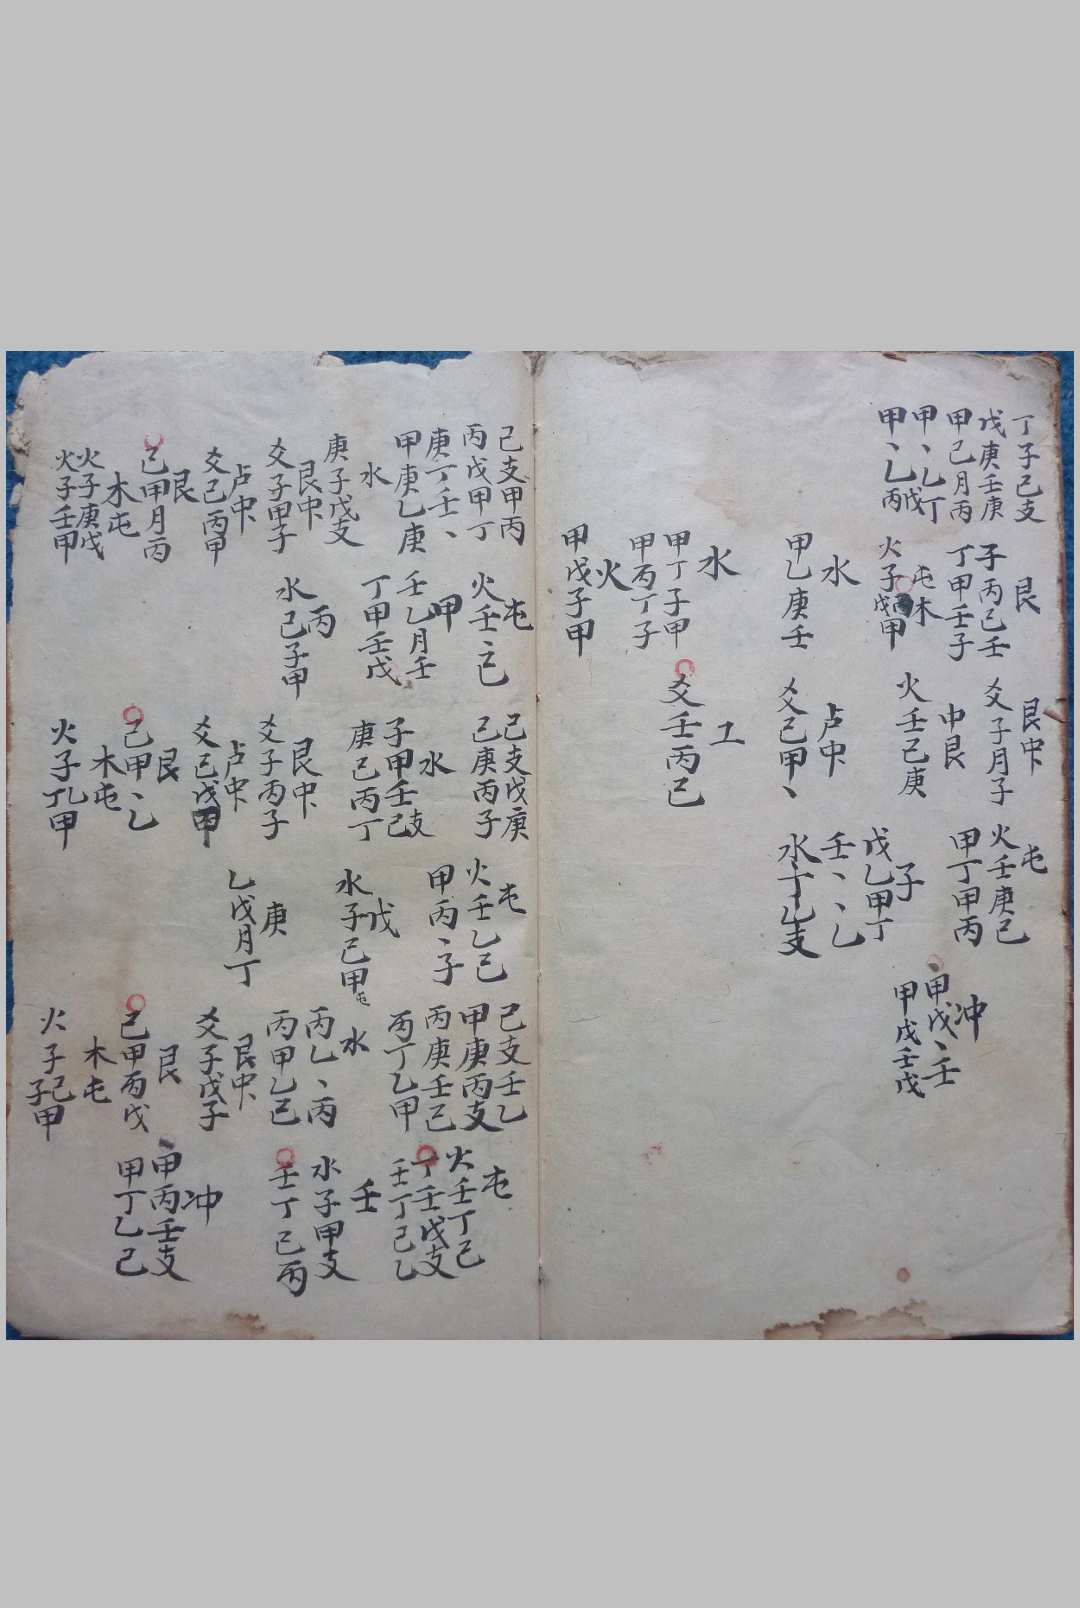 丁子己支
戊庚壬庚
甲己月丙
甲、乙丁
戊
甲、乙丙
艮
子丙己壬
丁甲壬子
屯木
火子戊甲
水
甲乙庚壬
水
甲丁子甲
甲丙丁子
火
甲戊子甲
艮中
爻子月子
中艮
火壬己庚
卢中
爻己甲、
工
爻壬丙己
屯
火壬庚己
甲丁甲丙
子
戊乙甲丁
壬、、乙
水丁乙支
冲
甲戊、壬
甲戊壬戊
己支甲丙
丙戊甲丁
庚丁壬、
甲庚乙庚
水
庚子戊支
艮中
爻子甲子
卢中
爻己丙甲
艮
己甲月丙
木屯
火子庚戊
火子壬甲
屯
火壬、己
甲
壬乙月壬
丁甲壬戊
丙
水己子甲
己支戊庚
己庚丙子
水
子甲壬己支
庚己丙丁
艮中
爻子丙子
卢中
爻己戊甲
艮
己甲、乙
木屯
火子丁乙甲
屯
火壬乙己
甲丙、子
戊
水子己甲
屯
庚
乙戊月丁
己支壬乙
甲庚丙支
丙庚壬己
丙丁乙甲
水
丙乙、丙
丙甲乙己
艮中
爻子戊子
艮
己甲丙戊
木屯
火子己
子甲
屯
火壬丁己
丁壬戊支
壬丁己乙
壬
水子甲支
壬丁己丙
冲
甲丙壬支
甲丁乙己